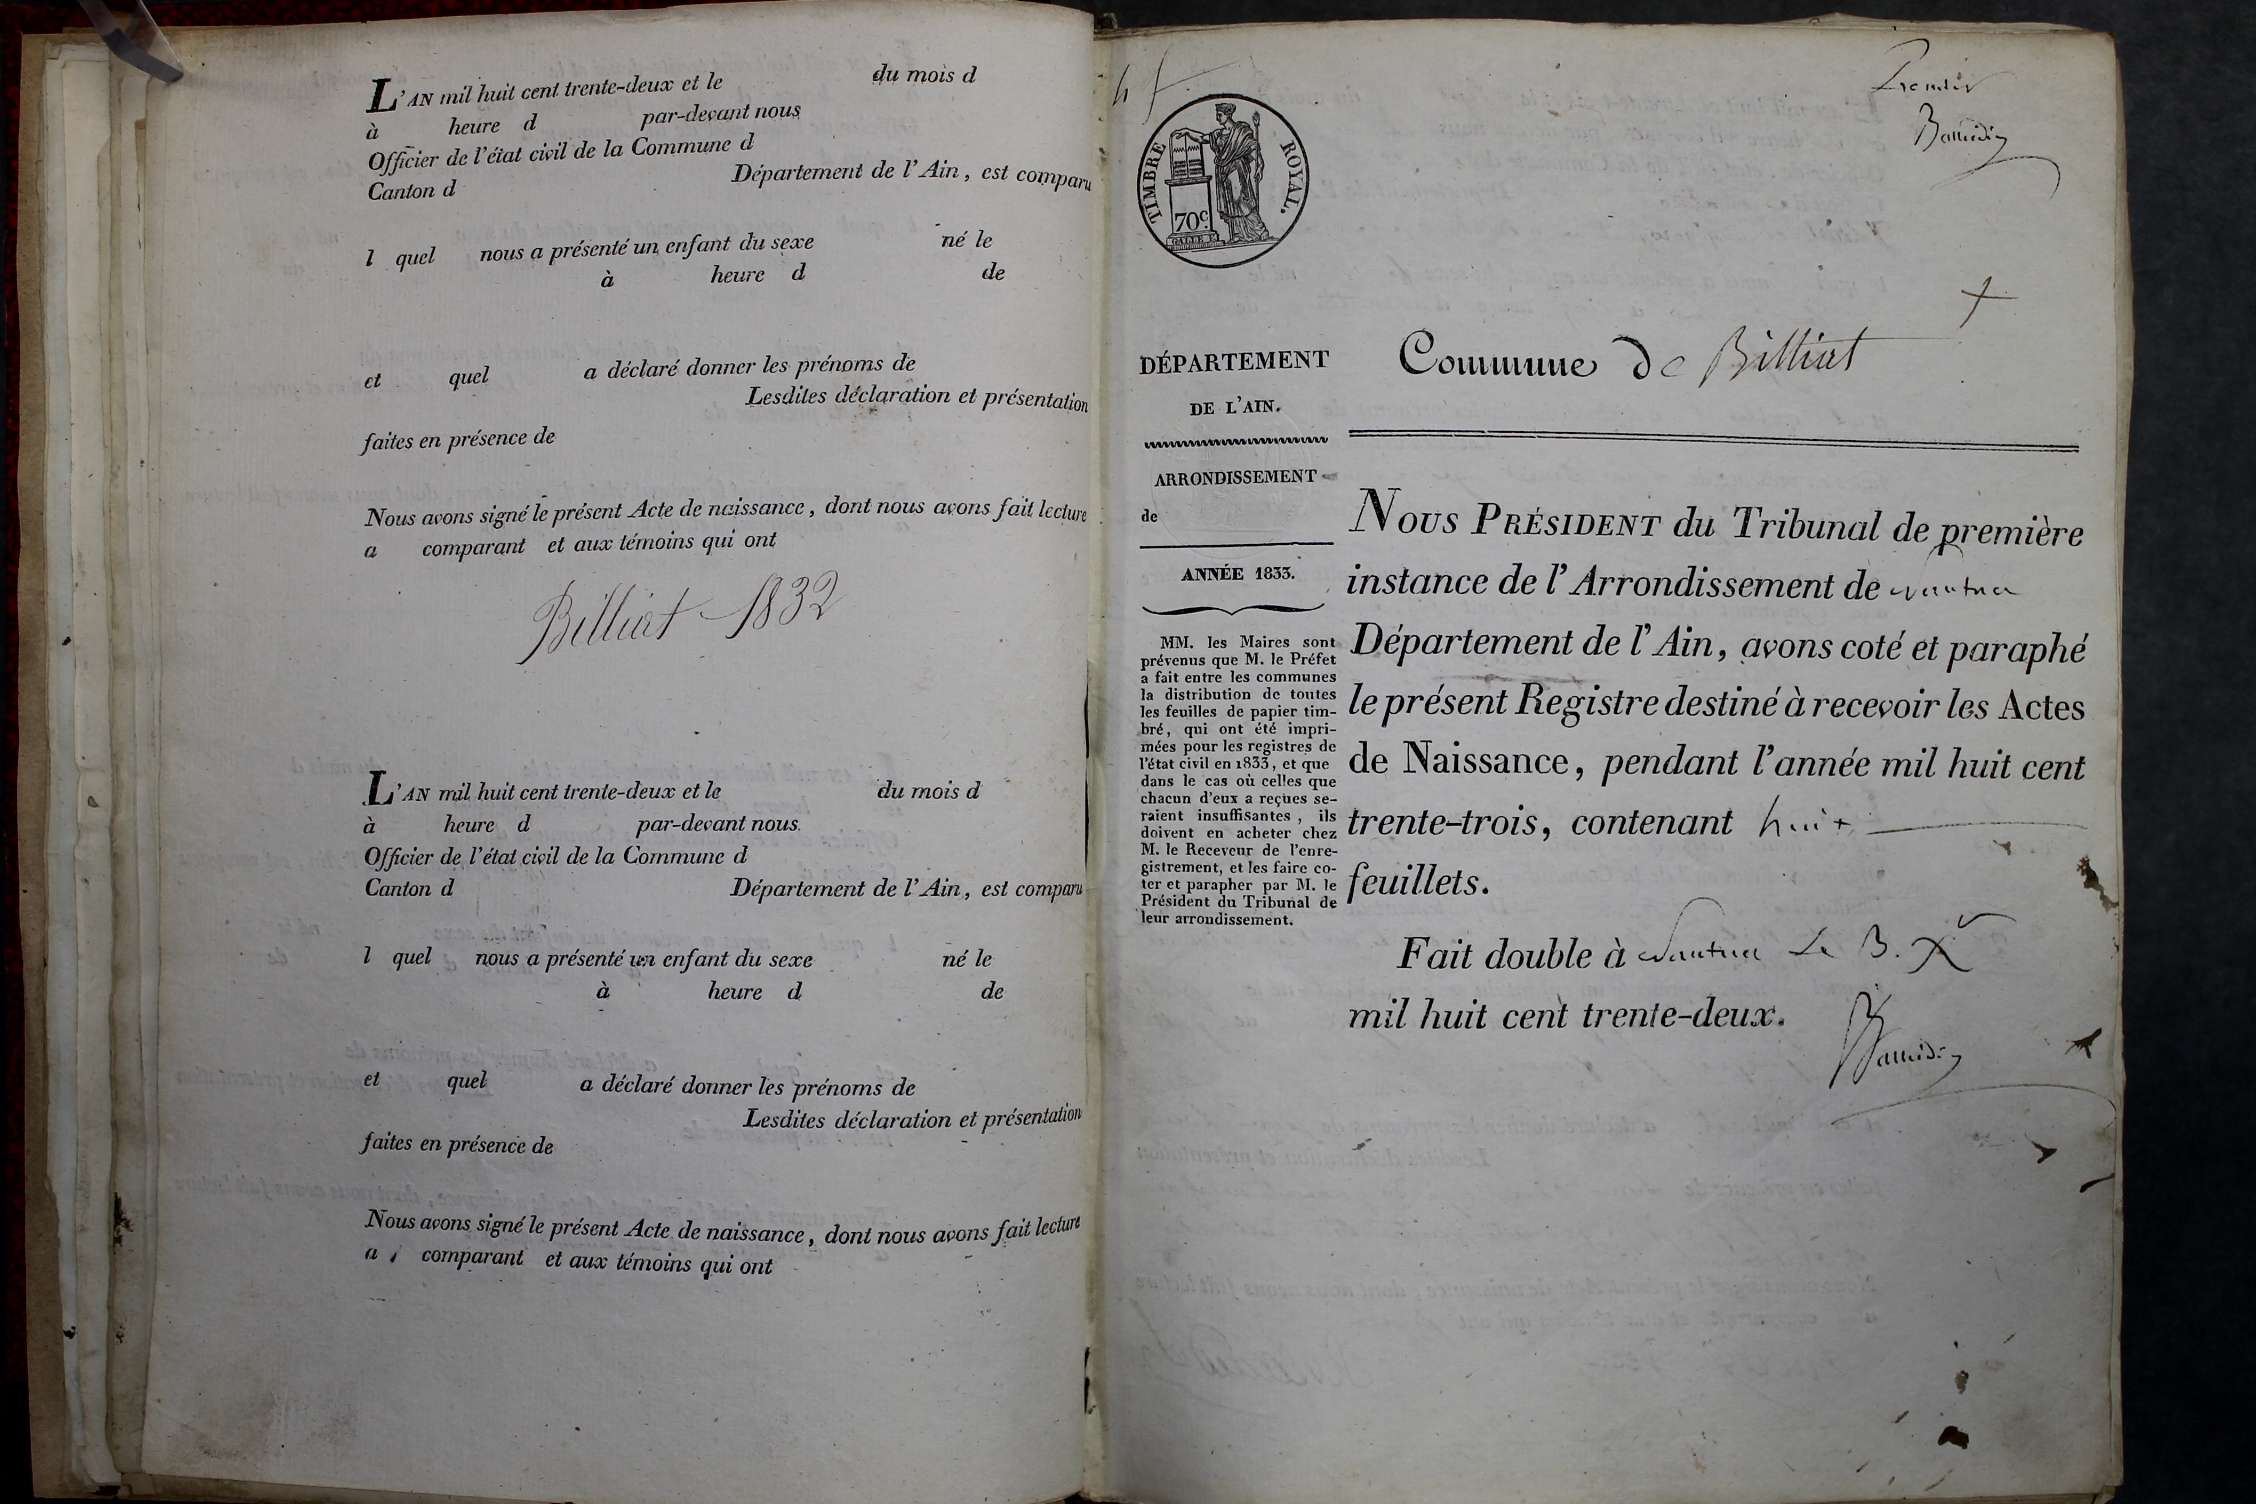 L'AN mil huit cent trente-deux et le du mois d
à heure d par-devant nous
Officier de l'état civil de la Commune d
Canton d Département de l'Ain, est comparu
l quel nous a présenté un enfant du sexe né le
à heure d de
et quel a déclaré donner les prénoms de
Lesdites déclaration et présentation
faites en présence de
Nous avons signé le présent Acte de naissance, dont nous avons fait lecture
a comparant et aux témoins qui ont
Billiat 1832
L'AN mil huit cent trente-deux et le du mois d
à heure d par-devant nous
Officier de l'état civil de la Commune d
Canton d Département de l'Ain, est comparu
l quel nous a présenté un enfant du sexe né le
à heure d de
et quel a déclaré donner les prénoms de
Lesdites déclaration et présentation
faites en présence de
Nous avons signé le présent Acte de naissance, dont nous avons fait lecture
a comparant et aux témoins qui ont
Premier
TIMBRE ROYAL.
70c.
DÉPARTEMENT
DE L'AIN.
ARRONDISSEMENT
de
ANNÉE 1833.
MM. les Maires sont
prévenus que M. le Préfet
a fait entre les communes
la distribution de toutes
les feuilles de papier tim-
bré, qui ont été impri-
mées pour les registres de
l'état civil en 1833, et que
dans le cas où celles que
chacun d'eux a reçues se-
raient insuffisantes, ils
doivent en acheter chez
M. le Receveur de l'enre-
gistrement, et les faire co-
ter et parapher par M. le
Président du Tribunal de
leur arrondissement.
Commune de Billiat
NOUS PRÉSIDENT du Tribunal de première
instance de l'Arrondissement de Nantua
Département de l'Ain, avons coté et paraphé
le présent Registre destiné à recevoir les Actes
de Naissance, pendant l'année mil huit cent
trente-trois, contenant huit
feuillets.
Fait double à Nantua le 3. Xr
mil huit cent trente-deux.